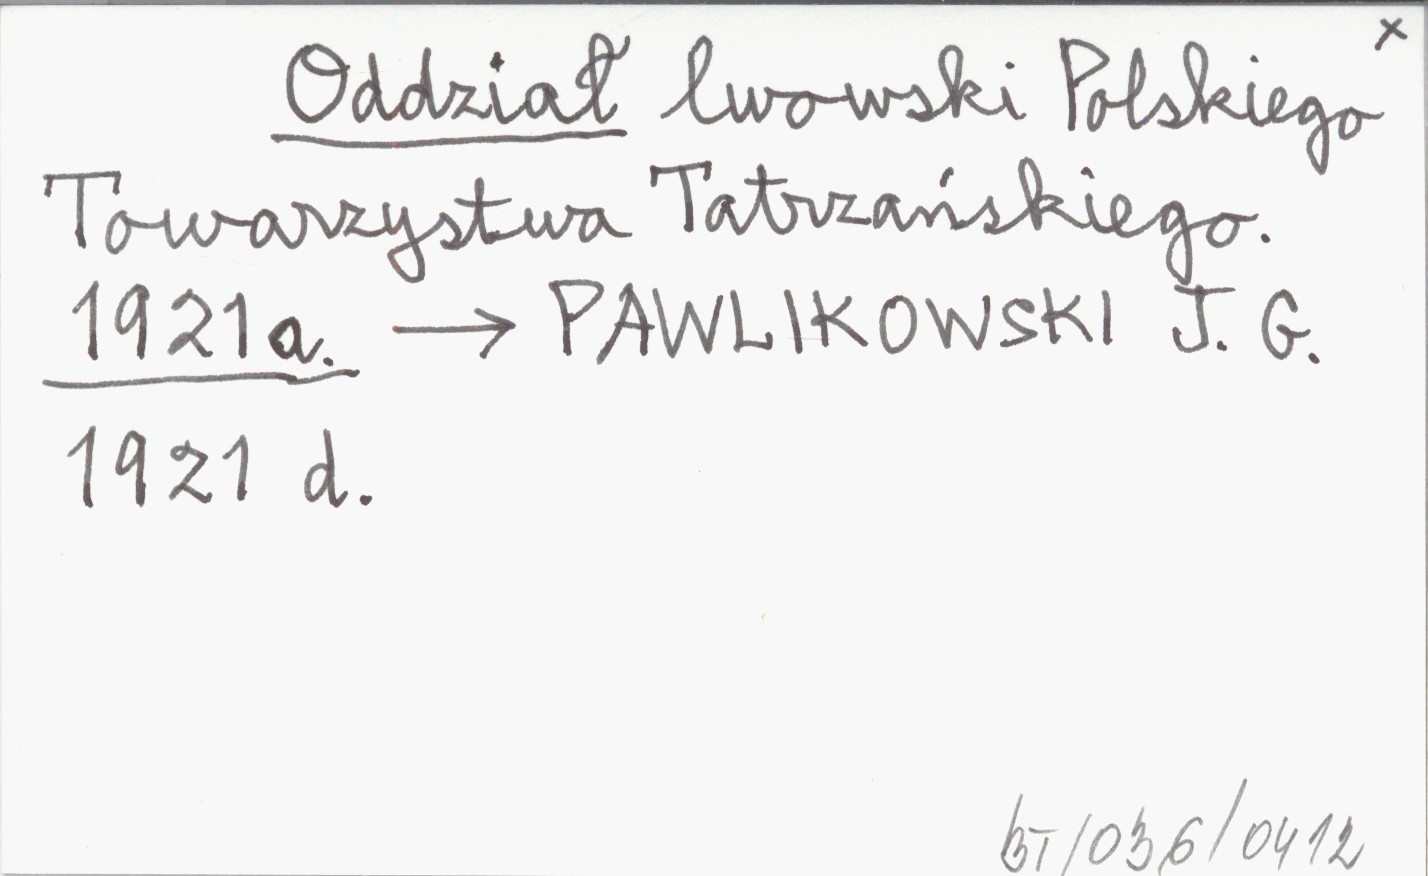 x
Oddział lwowski Polskiego
Towarzystwa Tatrzańskiego.
1921a. → PAWLIKOWSKI J. G.
1921 d.
BT/036/0412